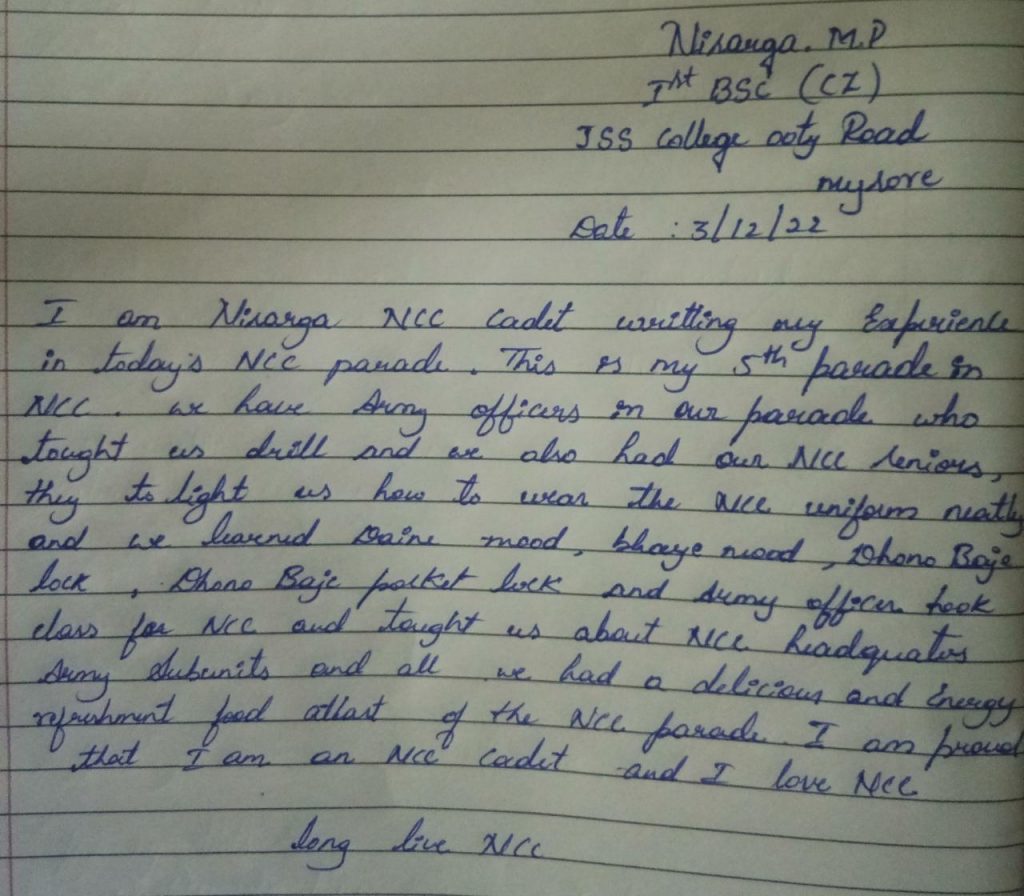 Nisarga. M.P
Ist BSC (CZ)
JSS College ooty Road
mysore
Date : 3/12/22
I am Nisarga NCC Cadet writting my Experience
in today's NCC parade. This is my 5th parade in
NCC. we have Army officers in our parade who
tought us drill and we also had our NCC seniors,
they to light us how to wear the NCC uniform neatly
and we learned Daine mood, bhaye mood, Dhono Baje
lock, Dhono Baje pocket lock and Army officer took
class for NCC and tought us about NCC headquators
Army Subunits and all we had a delicious and Energy
refreshment food atlast of the NCC parade I am proud
that I am an NCC Cadet and I love NCC
long live NCC